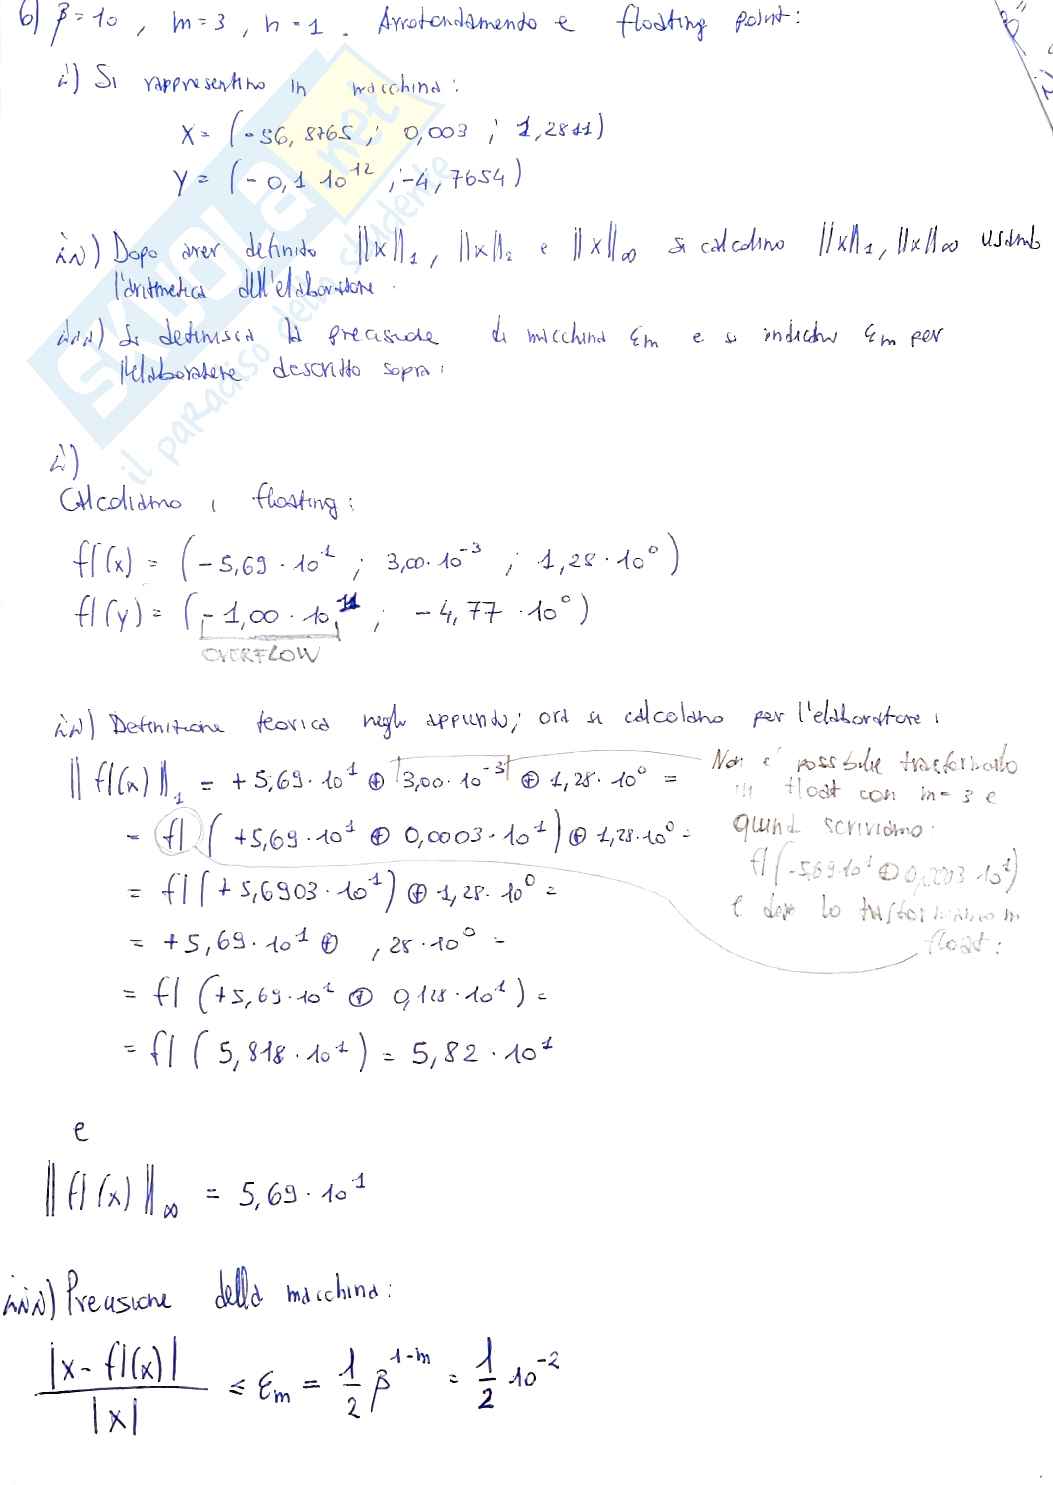 6) β=10 , m=3 , n=1 . Arrotondamento e floating point:
i) Si rappresentino in macchina:
X= (-56,8765 ; 0,003 ; 1,2811)
Y= (-0,1 10^12 ; -4,7654)
ii) Dopo aver definito ||x||_1, ||x||_2 e ||x||_∞ si calcolino ||x||_1, ||x||_∞ usando
l'aritmetica dell'elaboratore.
iii) Si definisca la precisione di macchina εm e si indichi εm per
l'elaboratore descritto sopra:
i)
Calcoliamo i floating:
fl(x) = (-5,69·10^1 ; 3,00·10^-3 ; 1,28·10^0)
fl(y) = (-1,00·10^11 ; -4,77·10^0)
OVERFLOW
ii) Definizione teorica negli appunti; ora si calcolano per l'elaboratore:
||fl(x)||_1 = +5,69·10^1 ⊕ 3,00·10^-3 ⊕ 1,28·10^0 =
Non è possibile trasformarlo
in float con m=3 e
quindi scriviamo.
fl(-5,69·10^1 ⊕ 0,0003·10^1)
e dopo lo trasformiamo in
float:
= fl(+5,69·10^1 ⊕ 0,0003·10^1) ⊕ 1,28·10^0 =
= fl(+5,6903·10^1) ⊕ 1,28·10^0 =
= +5,69·10^1 ⊕ ,28·10^0 =
= fl(+5,69·10^1 ⊕ 0,128·10^1) =
= fl(5,818·10^1) = 5,82·10^1
e
||fl(x)||_∞ = 5,69·10^1
iii) Precisione della macchina:
|x-fl(x)| / |x| ≤ εm = 1/2 β^(1-m) = 1/2 10^-2
SKUOLA.net
il paradiso dello studente